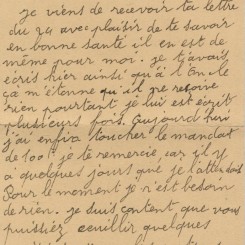 je viens de recevoir ta lettre
du 24 avec plaisir de te savoir
en bonne santé il en est de
même pour moi. je t'avais
écris hier ainsi qu'à l'Oncle
ça m'étonne qu'il ne reçoive
rien pourtant je lui est écrit
plusieurs fois. Aujourd'hui
j'ai enfin toucher le mandat
de 100f je te remercie, car il y
a quelques jours que je l'attendais
Pour le moment je n'est besoin
de rien. je suis content que vous
puissiez cueillir quelques